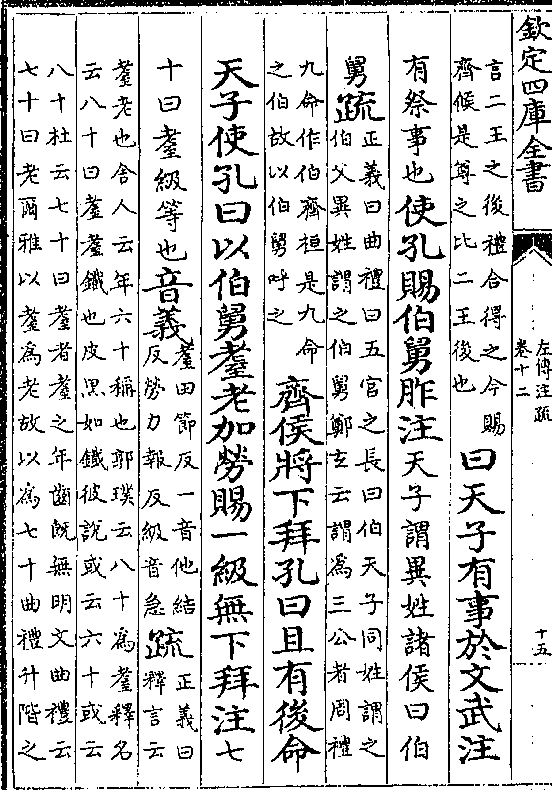 欽定四庫全書
左傳注疏
卷十二
十五
言二王之後禮合得之今賜
齊侯是尊之比二王後也
曰天子有事於文武注
有祭事也使孔賜伯舅胙注天子謂異姓諸侯曰伯
舅疏正義曰曲禮曰五官之長曰伯天子同姓謂之
伯父異姓謂之伯舅鄭玄云謂為三公者周禮
九命作伯齊桓是九命
之伯故以伯舅呼之
齊侯將下拜孔曰且有後命
天子使孔曰以伯舅耋老加勞賜一級無下拜注七
十曰耋級等也音義耋田節反一音他結
反勞力報反級音急
疏正義曰
釋言云
耋老也舍人云年六十稱也郭璞云八十為耋釋名
云八十曰耋耋鐵也皮黑如鐵彼說或云六十或云
八十杜云七十曰耋者耋之年齒既無明文曲禮云
七十曰老爾雅以耋為老故以為七十曲禮升階之